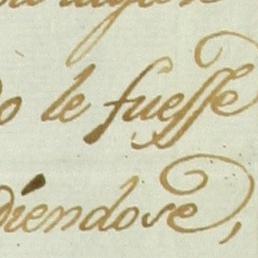 o le fuesse
diendose,